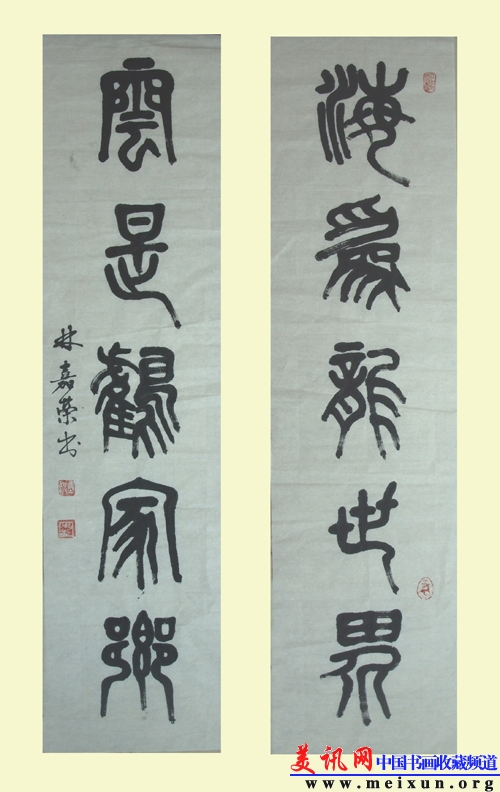 海為龍世界
雲是鶴家鄉
林嘉荣书
美讯网 中国书画收藏频道
www.meixun.org